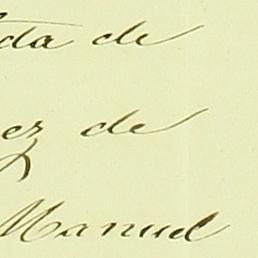 da de
ez de
Manuel